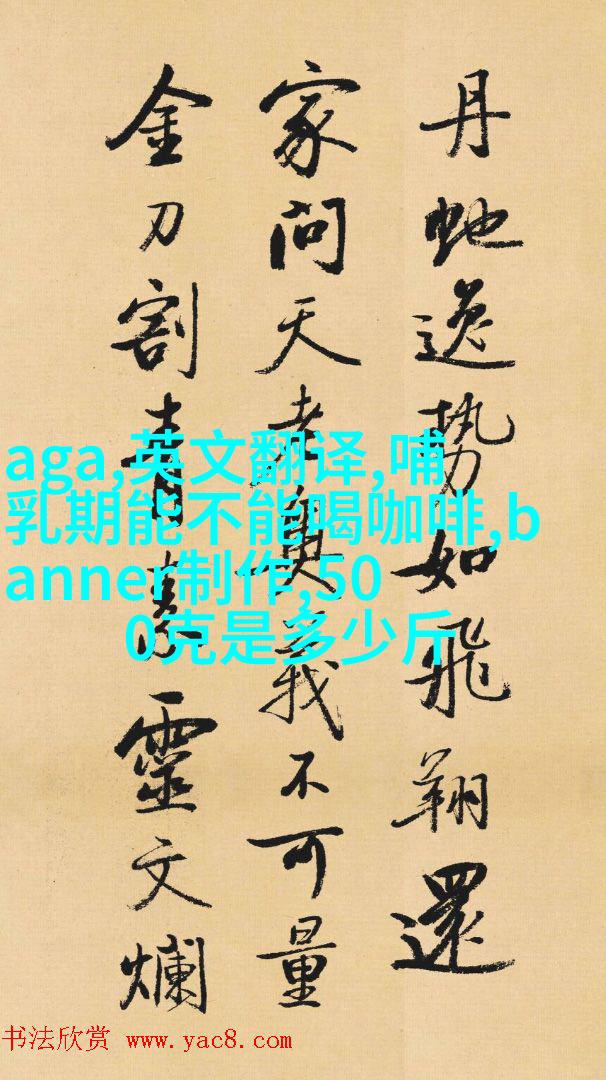 丹虵逸勢如飛翔還
家問天老奥義不可量
金刀割青素靈文爛
aga,英文翻译,哺
乳期能不能喝咖啡,b
anner制作,50
0克是多少斤
书法欣赏 www.yac8.com